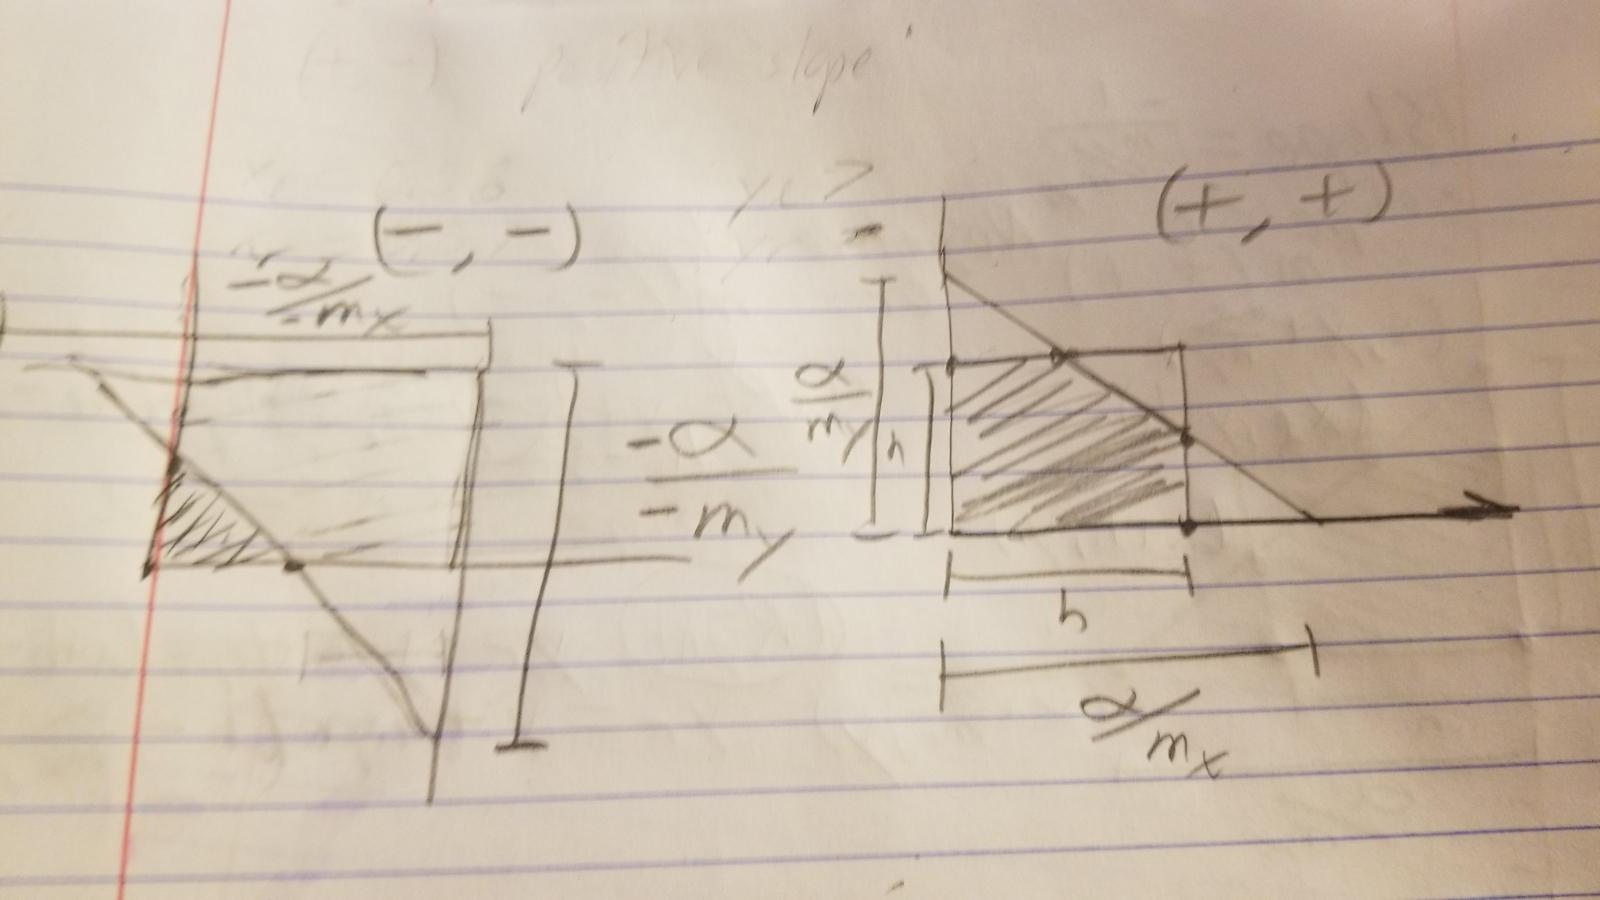 (+, -) positive slope
(-, -)
(+, +)
-α/-mx
α/my
h
-α/-my
h
α/mx